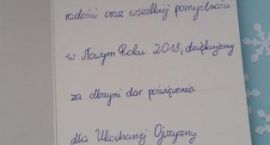 radości oraz wszelkiej pomyślności
w Nowym Roku 2018, dziękujemy
za olbrzymi dar poświęcenia
dla Ukochanej Ojczyzny